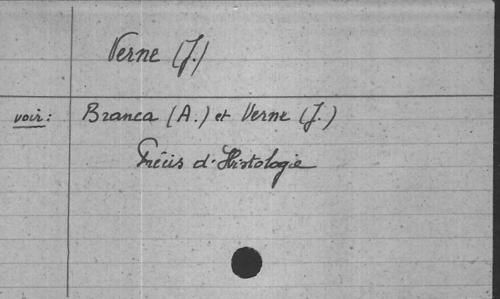 Verne (J.)
voir: Branca (A.) et Verne (J.)
Précis d'Histologie